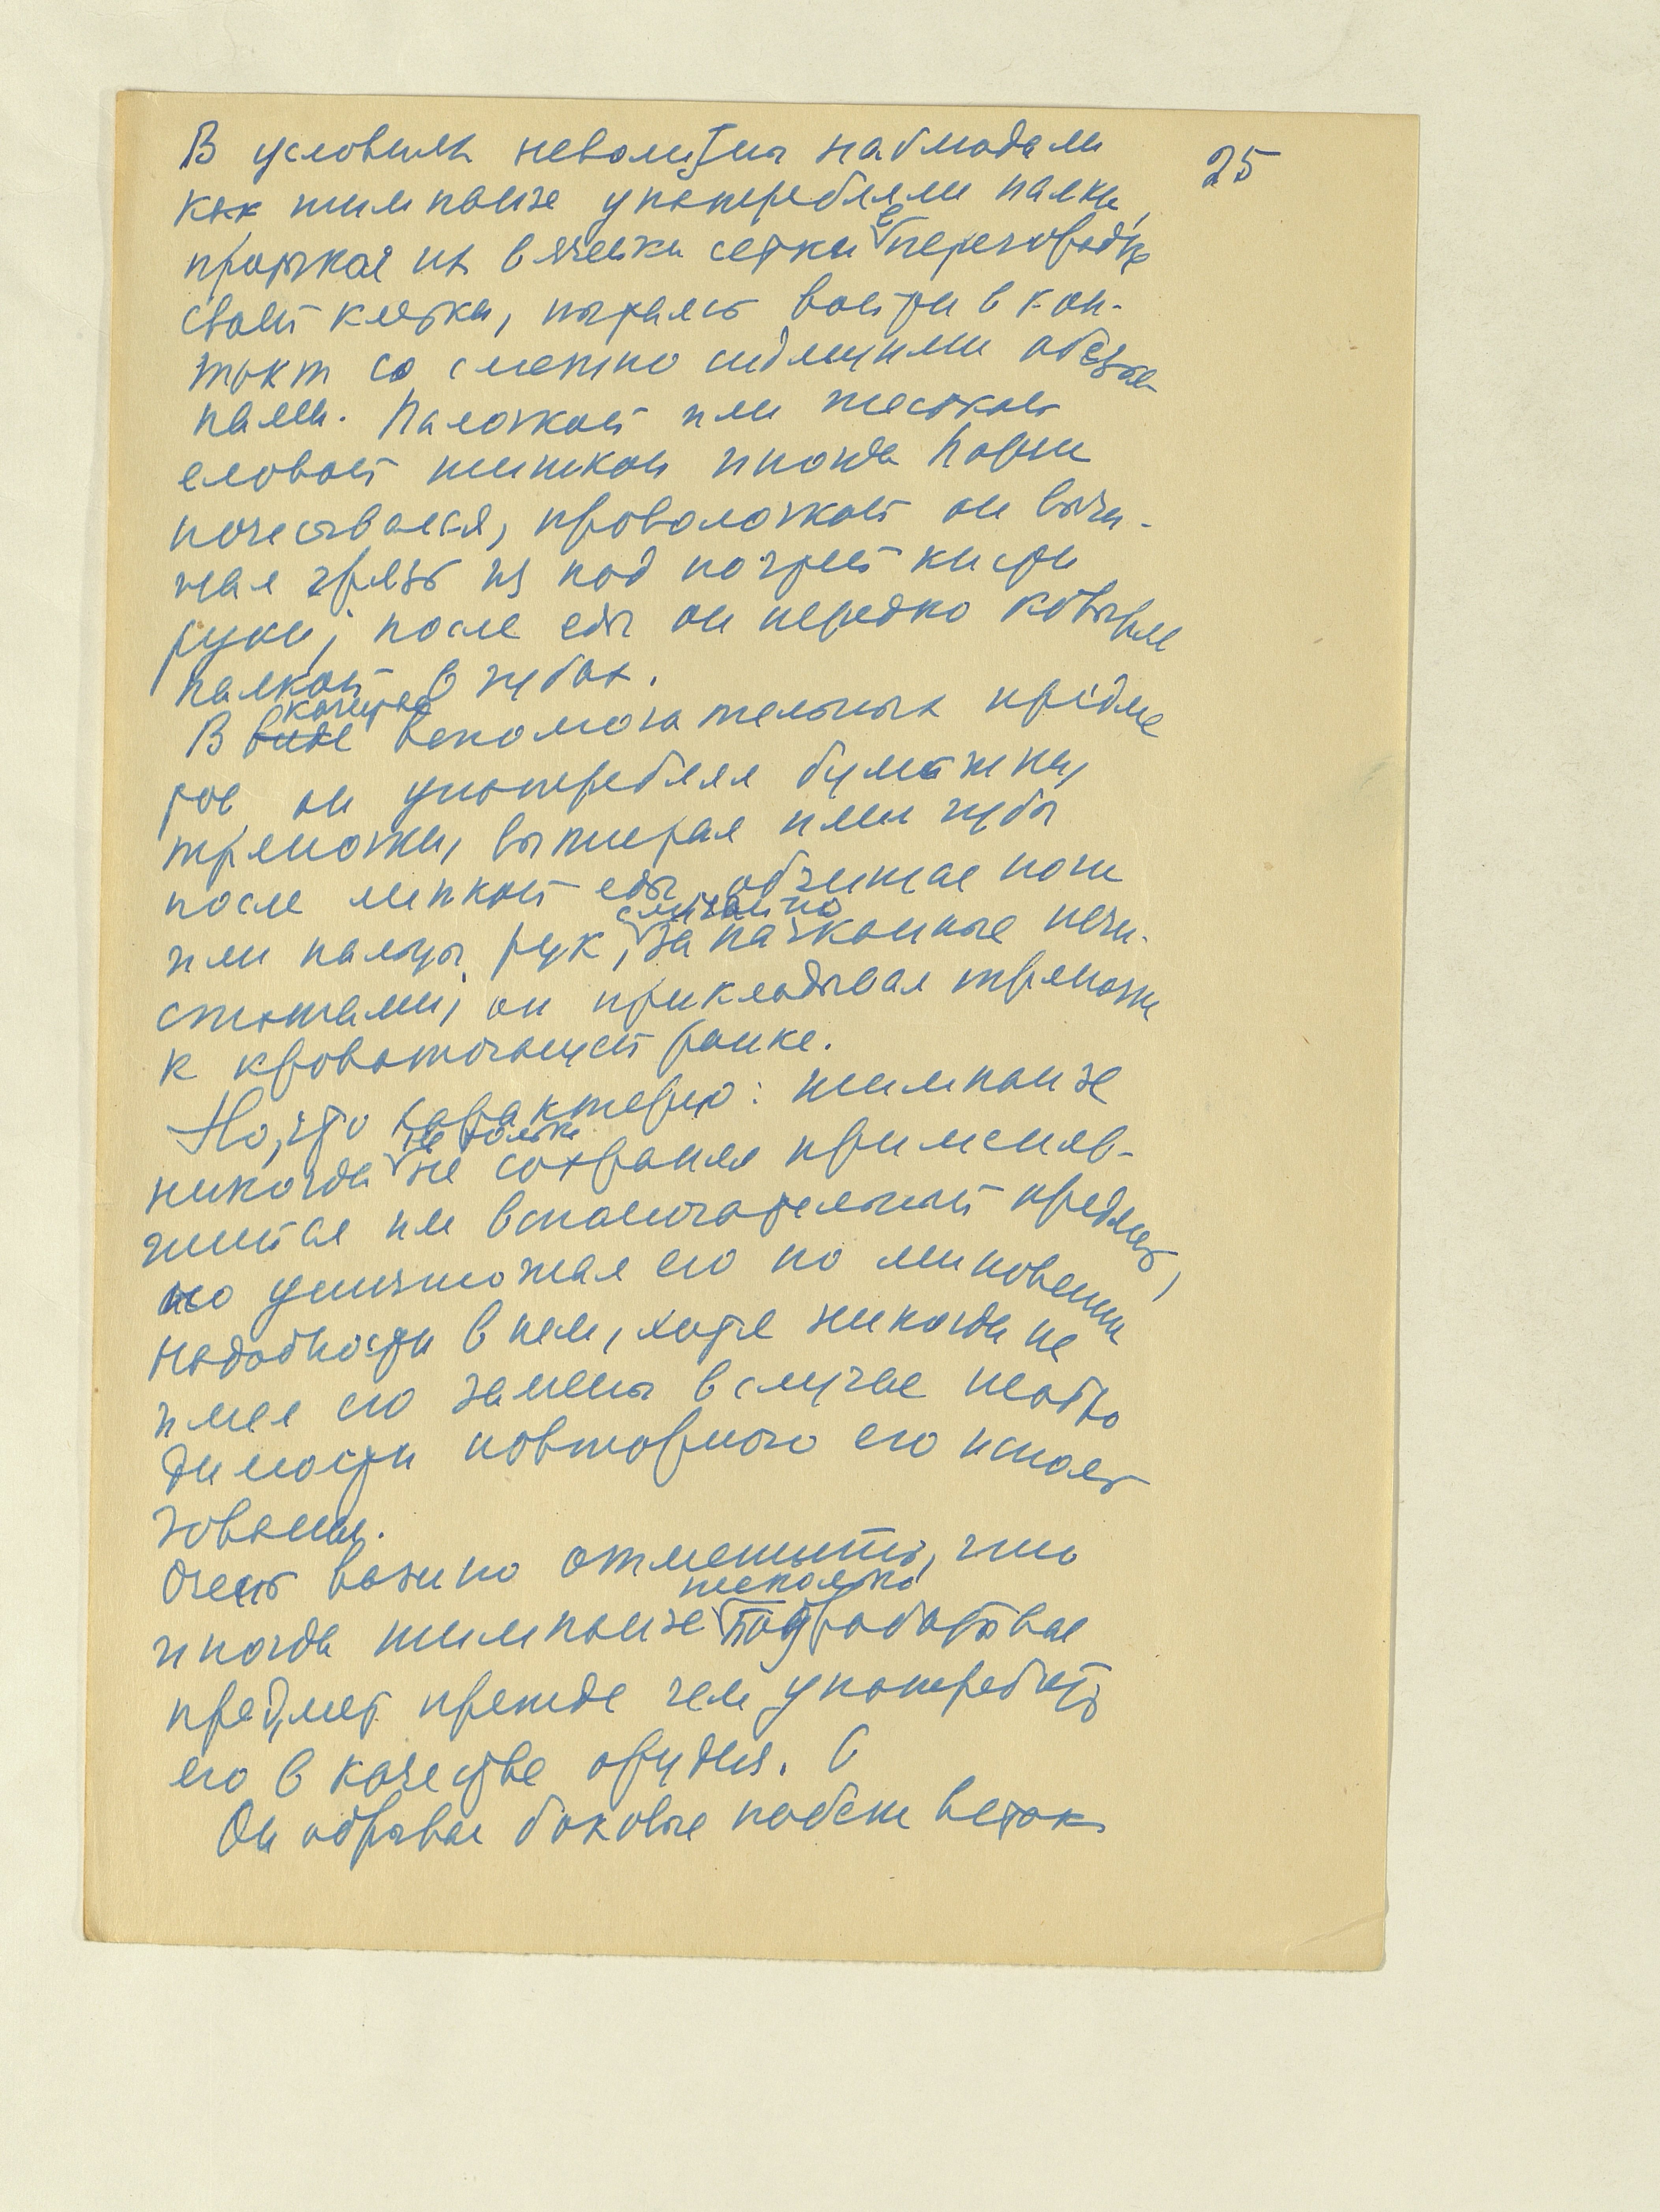 25
В условиях неволи мы наблюдали
как шимпанзе употребляли палки,
протыкая их в ячейки сетки в перегородке
своей клетки, пытаясь войти в кон-
такт со смежно сидящими обезья-
нами. Палочкой или жесткой
еловой шишкой иногда Парис
почесывался, проволочкой он вычи-
щал грязь из под ногтей кисти
руки; после еды он нередко ковырял
палкой в зубах.
В качестве вспомогательных предме
тов он употреблял бумажки,
тряпочки, вытирая ими зубы
после липкой еды, обчищая ноги
или пальцы рук, случайно запачканные нечи-
стотами, он прикладывал тряпочки
к кровоточащей ранке.
Но, что характерно: шимпанзе
никогда не только не сохранял применяв-
шийся им вспомогательный предмет,
но уничтожал его по миновении
надобности в нем, хотя никогда не
имел его замены в случае необхо
димости повторного его исполь
зования.
Очень важно отметить, что
иногда шимпанзе несколько подрабатывал
предмет прежде чем употребить
его в качестве орудия. С
Он обрывал боковые побеги веток